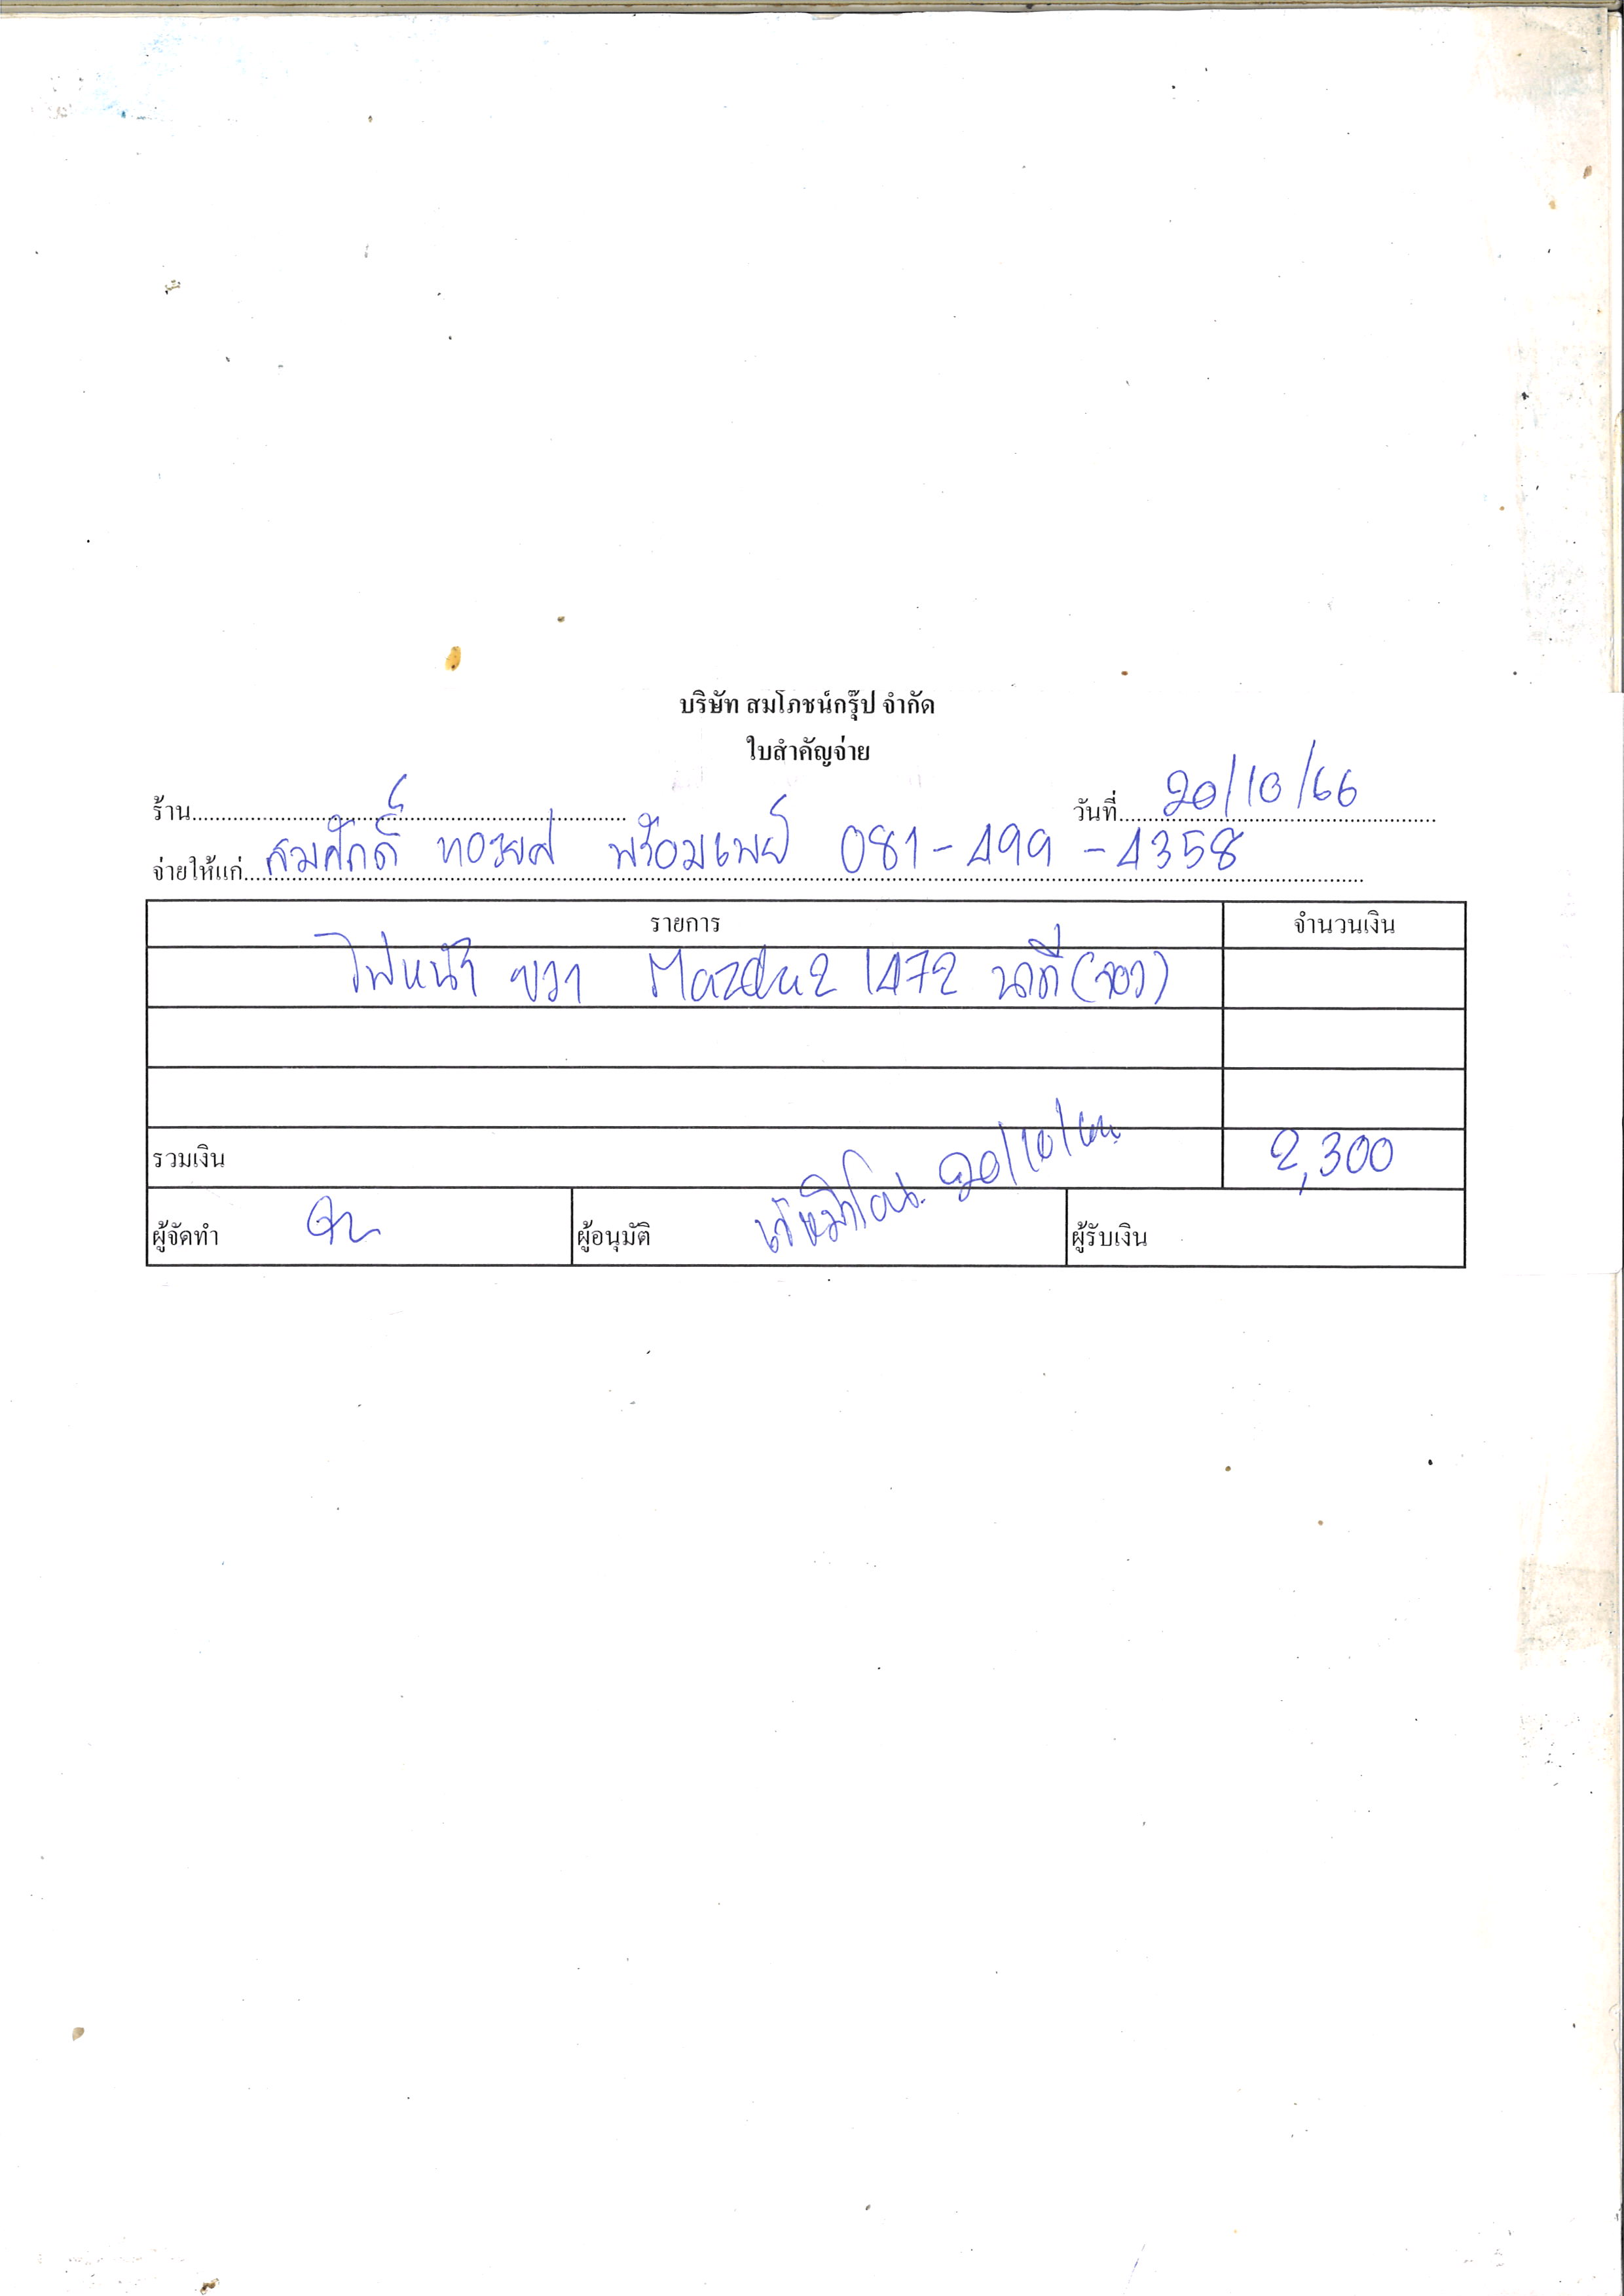 บริษัท สมโภชน์กรุ๊ป จำกัด
ใบสำคัญจ่าย
ร้าน วันที่ 20/10/66
จ่ายให้แก่ สมศักดิ์ พร้อมเพย์ 081-499-4358
รายการ จำนวนเงิน
ไฟหน้า ขวา Mazda2 1472
รวมเงิน 2,300
ผู้จัดทำ ผู้อนุมัติ 20/10/66 ผู้รับเงิน